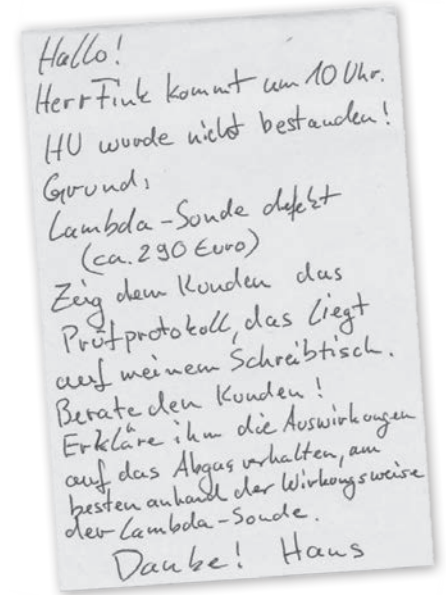 Hallo!
Herr Fink kommt um 10 Uhr.
HU wurde nicht bestanden!
Grund:
Lambda-Sonde defekt
(ca. 290 Euro)
Zeig dem Kunden das
Prüfprotokoll, das liegt
auf meinem Schreibtisch.
Berate den Kunden!
Erkläre ihm die Auswirkungen
auf das Abgasverhalten, am
besten anhand der Wirkungsweise
der Lambda-Sonde.
Danke! Hans